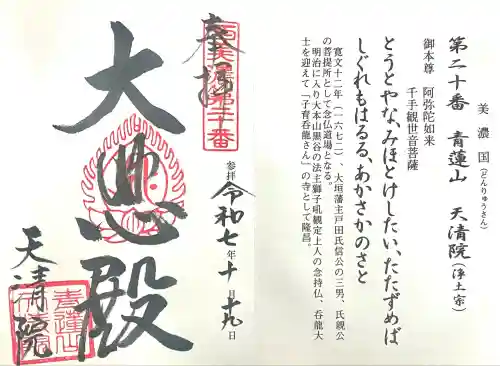 美濃国(どんりゅうさん)
第二十番 青蓮山 天清院(浄土宗)
御本尊 阿弥陀如来
千手観世音菩薩
とうとやな、みほとけしたい、たたずめば
しぐれもはるる、あかさかのさと
寛文十二年(一六七二)、大垣藩主戸田氏信公の三男、氏親公
の菩提所として念仏道場となる。
明治に入り大本山黒谷の法主獅子吼観定上人の念持仏、呑龍大
士を迎えて「子育呑龍さん」の寺として隆昌。
奉拝
参拝 令和七年十月十九日
大悲殿
天清院
青蓮山